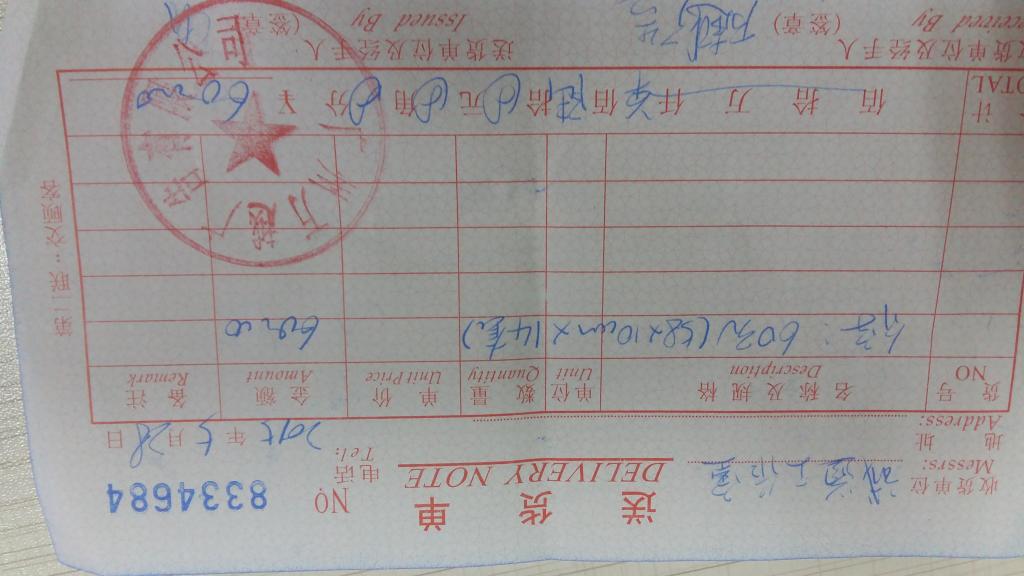 送 货 单
DELIVERY NOTE
NO 8334684
收货单位
Messrs:
电话
Tel:
地 址
Address:
年 5 月 28 日
货 号
NO
名 称 及 规 格
Description
单位
Unit
数 量
Quantity
单 价
Unit Price
金 额
Amount
备 注
Remark
60元(58x10cmx14套)
60.00
计
TOTAL
佰 拾 万 仟 佰 陆 拾 0 元 0 角 0 分 ¥ 60.00
第二联：交顾客
收货单位及经手人
Received By
(签章)
送货单位及经手人
Issued By
(签章)